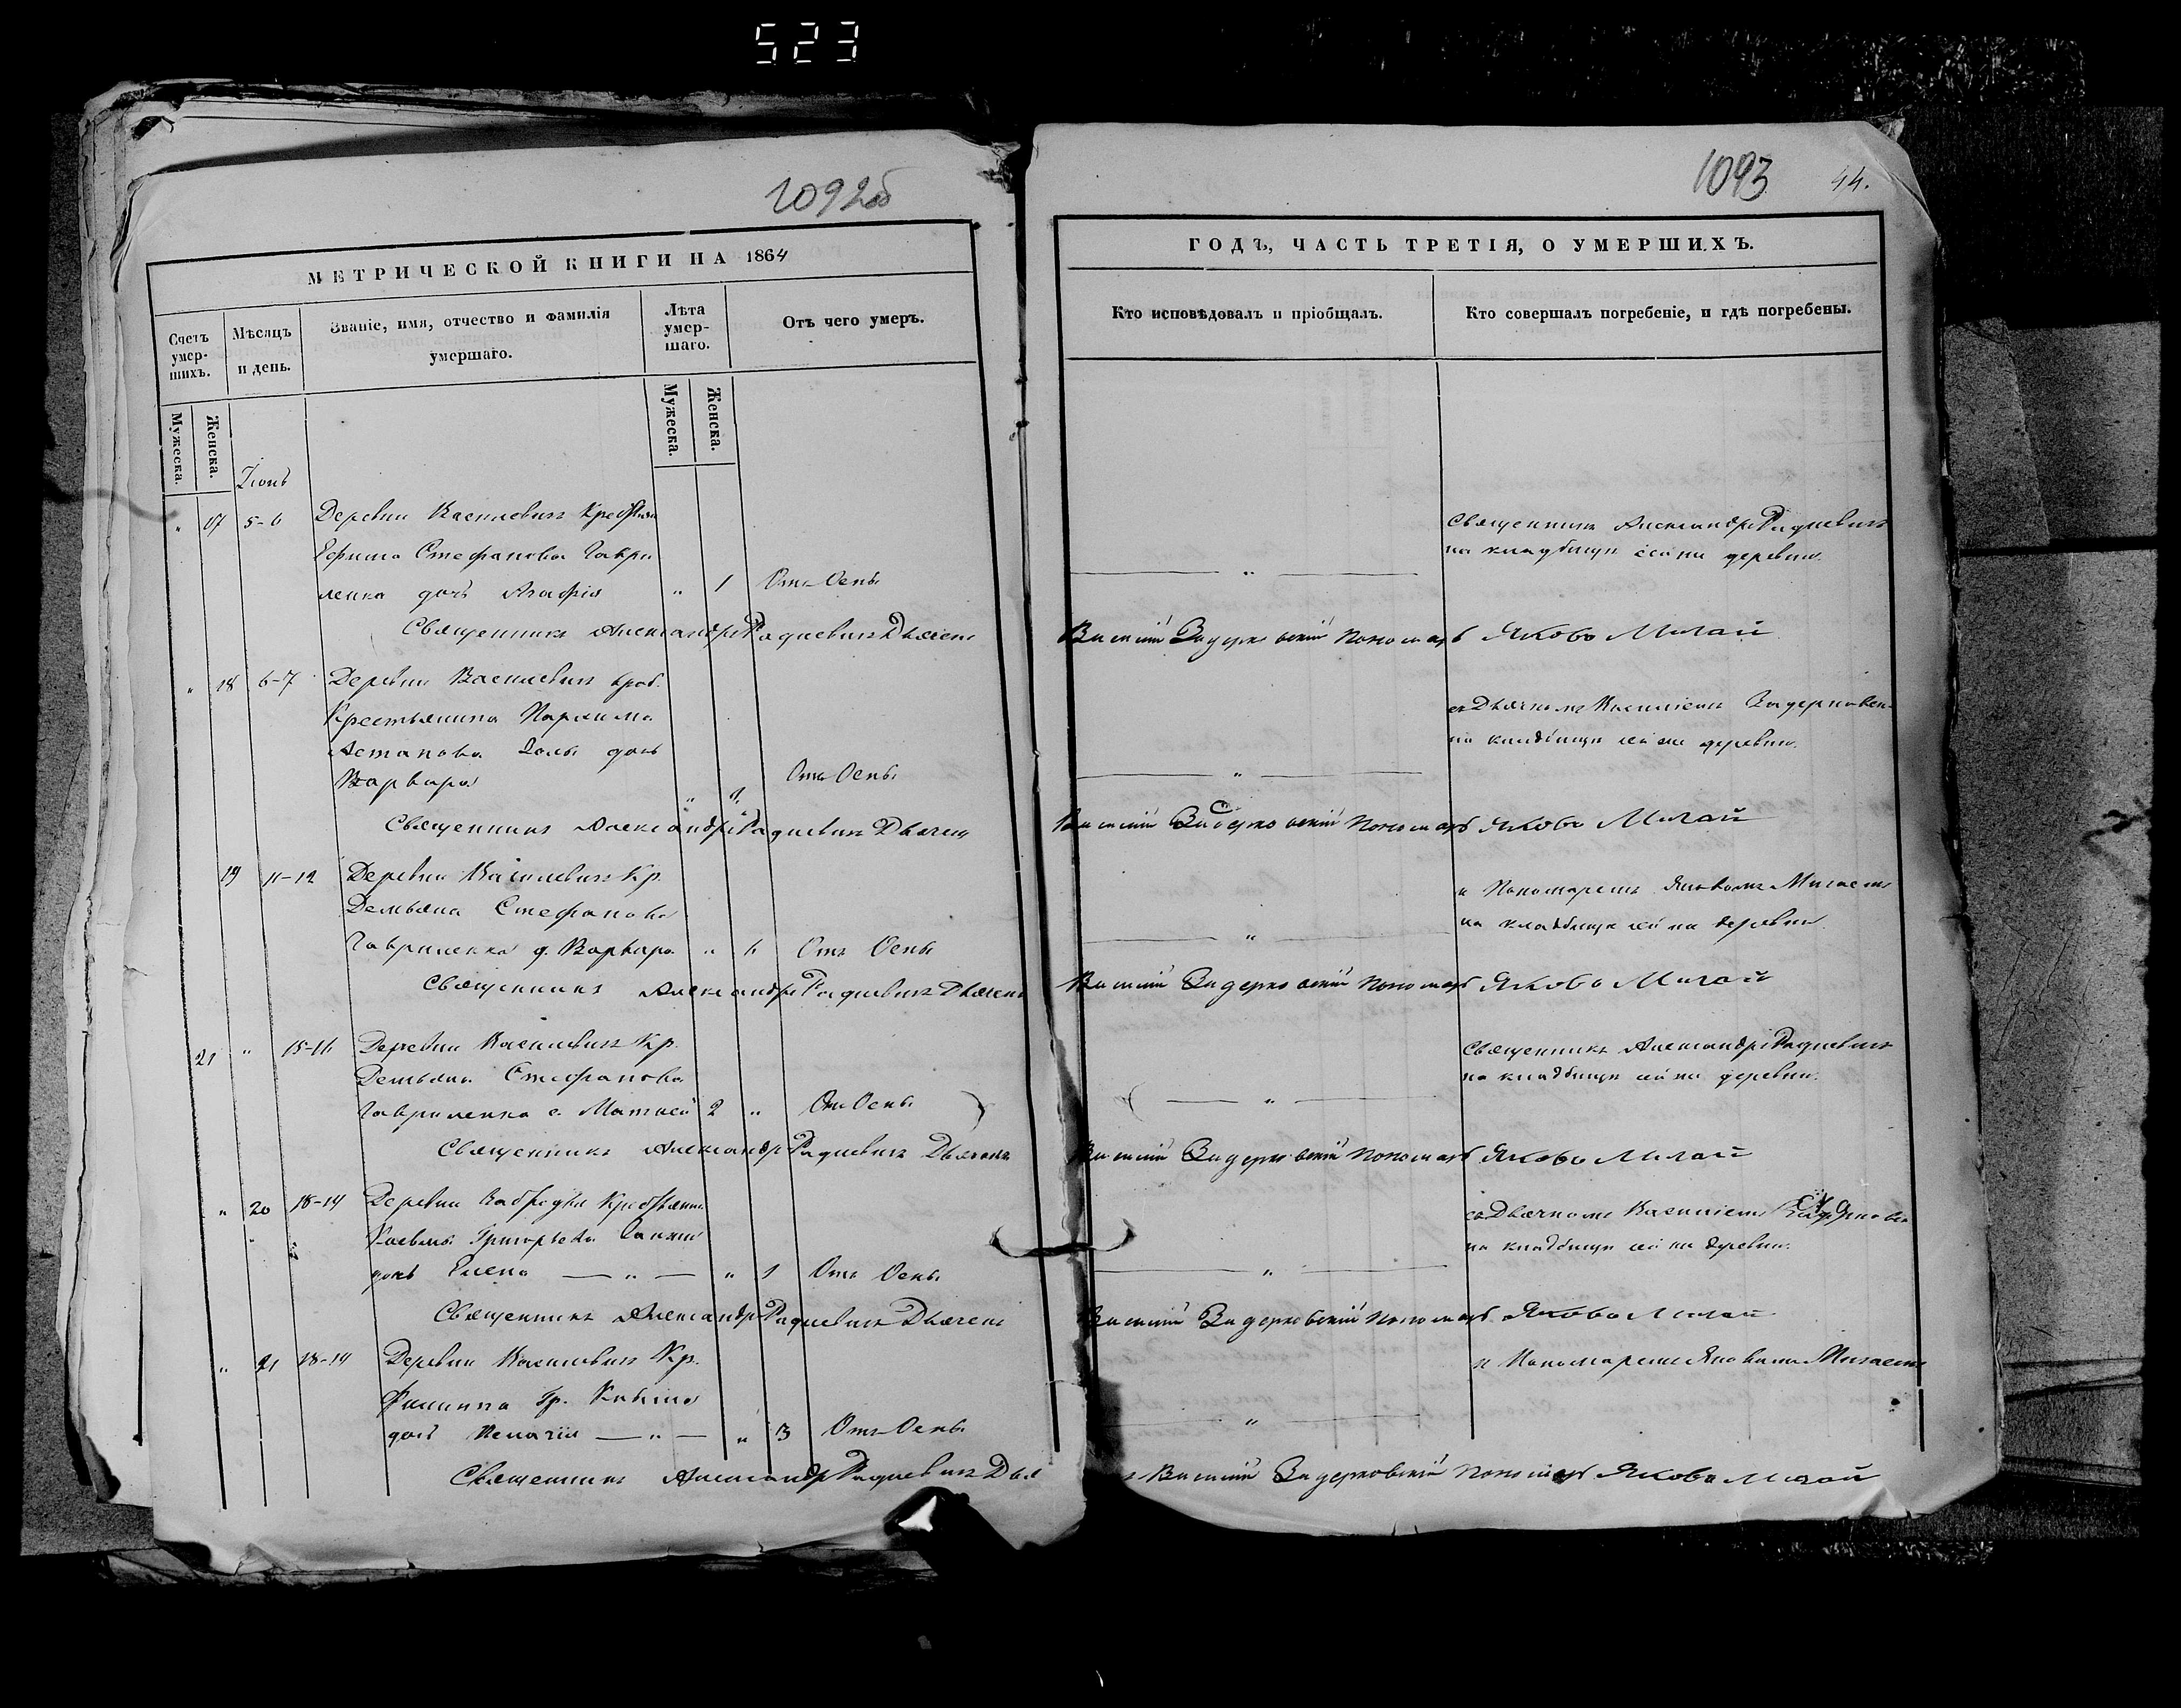 523
1092об
МЕТРИЧЕСКОЙ КНИГИ НА 1864
Счетъ умер-шихъ.
Мѣсяцъ и день.
Званіе, имя, отчество и фамилія умершаго.
Лѣта умер-шаго.
Отъ чего умеръ.
Мужеска.
Женска.
Мужеска.
Женска.
Іюнь
" 17 5-6 Деревни Василевич
Ефима Стефанова Гаври
ленка дочь Агафія " 1 Отъ Оспы
Священникъ Александръ Радцевичъ Дьячекъ
" 18 6-7 Деревни Василевич
Крестьянина Пархима
Астапова дочь
Варвара " 1. Отъ Оспы
Священникъ Александръ Радцевичъ Дьячекъ
19 11-12 Деревни Василевич Кр.
Демьяна Стефанова
Гавриленка д. Варвара " Отъ Оспы
Священникъ Александръ Радцевичъ Дьячекъ
21 " 15-16 Деревни Василевич Кр.
Демьяна Стефанова
Гавриленка с. Матвей 2 " Отъ Оспы
Священникъ Александръ Радцевичъ Дьячекъ
" 20 18-19 Деревни
Григорьева
дочь Елена — " — " 1 Отъ Оспы
Священникъ Александръ Радцевичъ Дьячекъ
" 21 18-19 Деревни Василевич Кр.
Филиппа Гр.
дочь Пелагія — " — " 3 Отъ Оспы
Священникъ Александръ Радцевичъ Дья
1093 44.
ГОДЪ, ЧАСТЬ ТРЕТІЯ, О УМЕРШИХЪ.
Кто исповѣдовалъ и пріобщалъ.
Кто совершалъ погребеніе, и гдѣ погребены.
Священникъ Александръ Радцевичъ
на кладбищи сей же деревни.
Василій Задерковскій Пономарь Яковъ Мигай
съ Дьячкомъ Василіемъ
на кладбищи сей же деревни.
Василій Задерковскій Пономарь Яковъ Мигай
и Пономаремъ Яковомъ Мигаемъ
на кладбищи сей же деревни
Василій Задерковскій Пономарь Яковъ Мигай
Священникъ Александръ Радцевичъ
на кладбищи сей же деревни.
Василій Задерковскій Пономарь Яковъ Мигай
съ Дьячкомъ Василіемъ
на кладбищи сей же деревни.
Василій Задерковскій Пономарь Яковъ Мигай
и Пономаремъ Яковомъ Мигаемъ
Василій Задерковскій Пономарь Яковъ Мигай